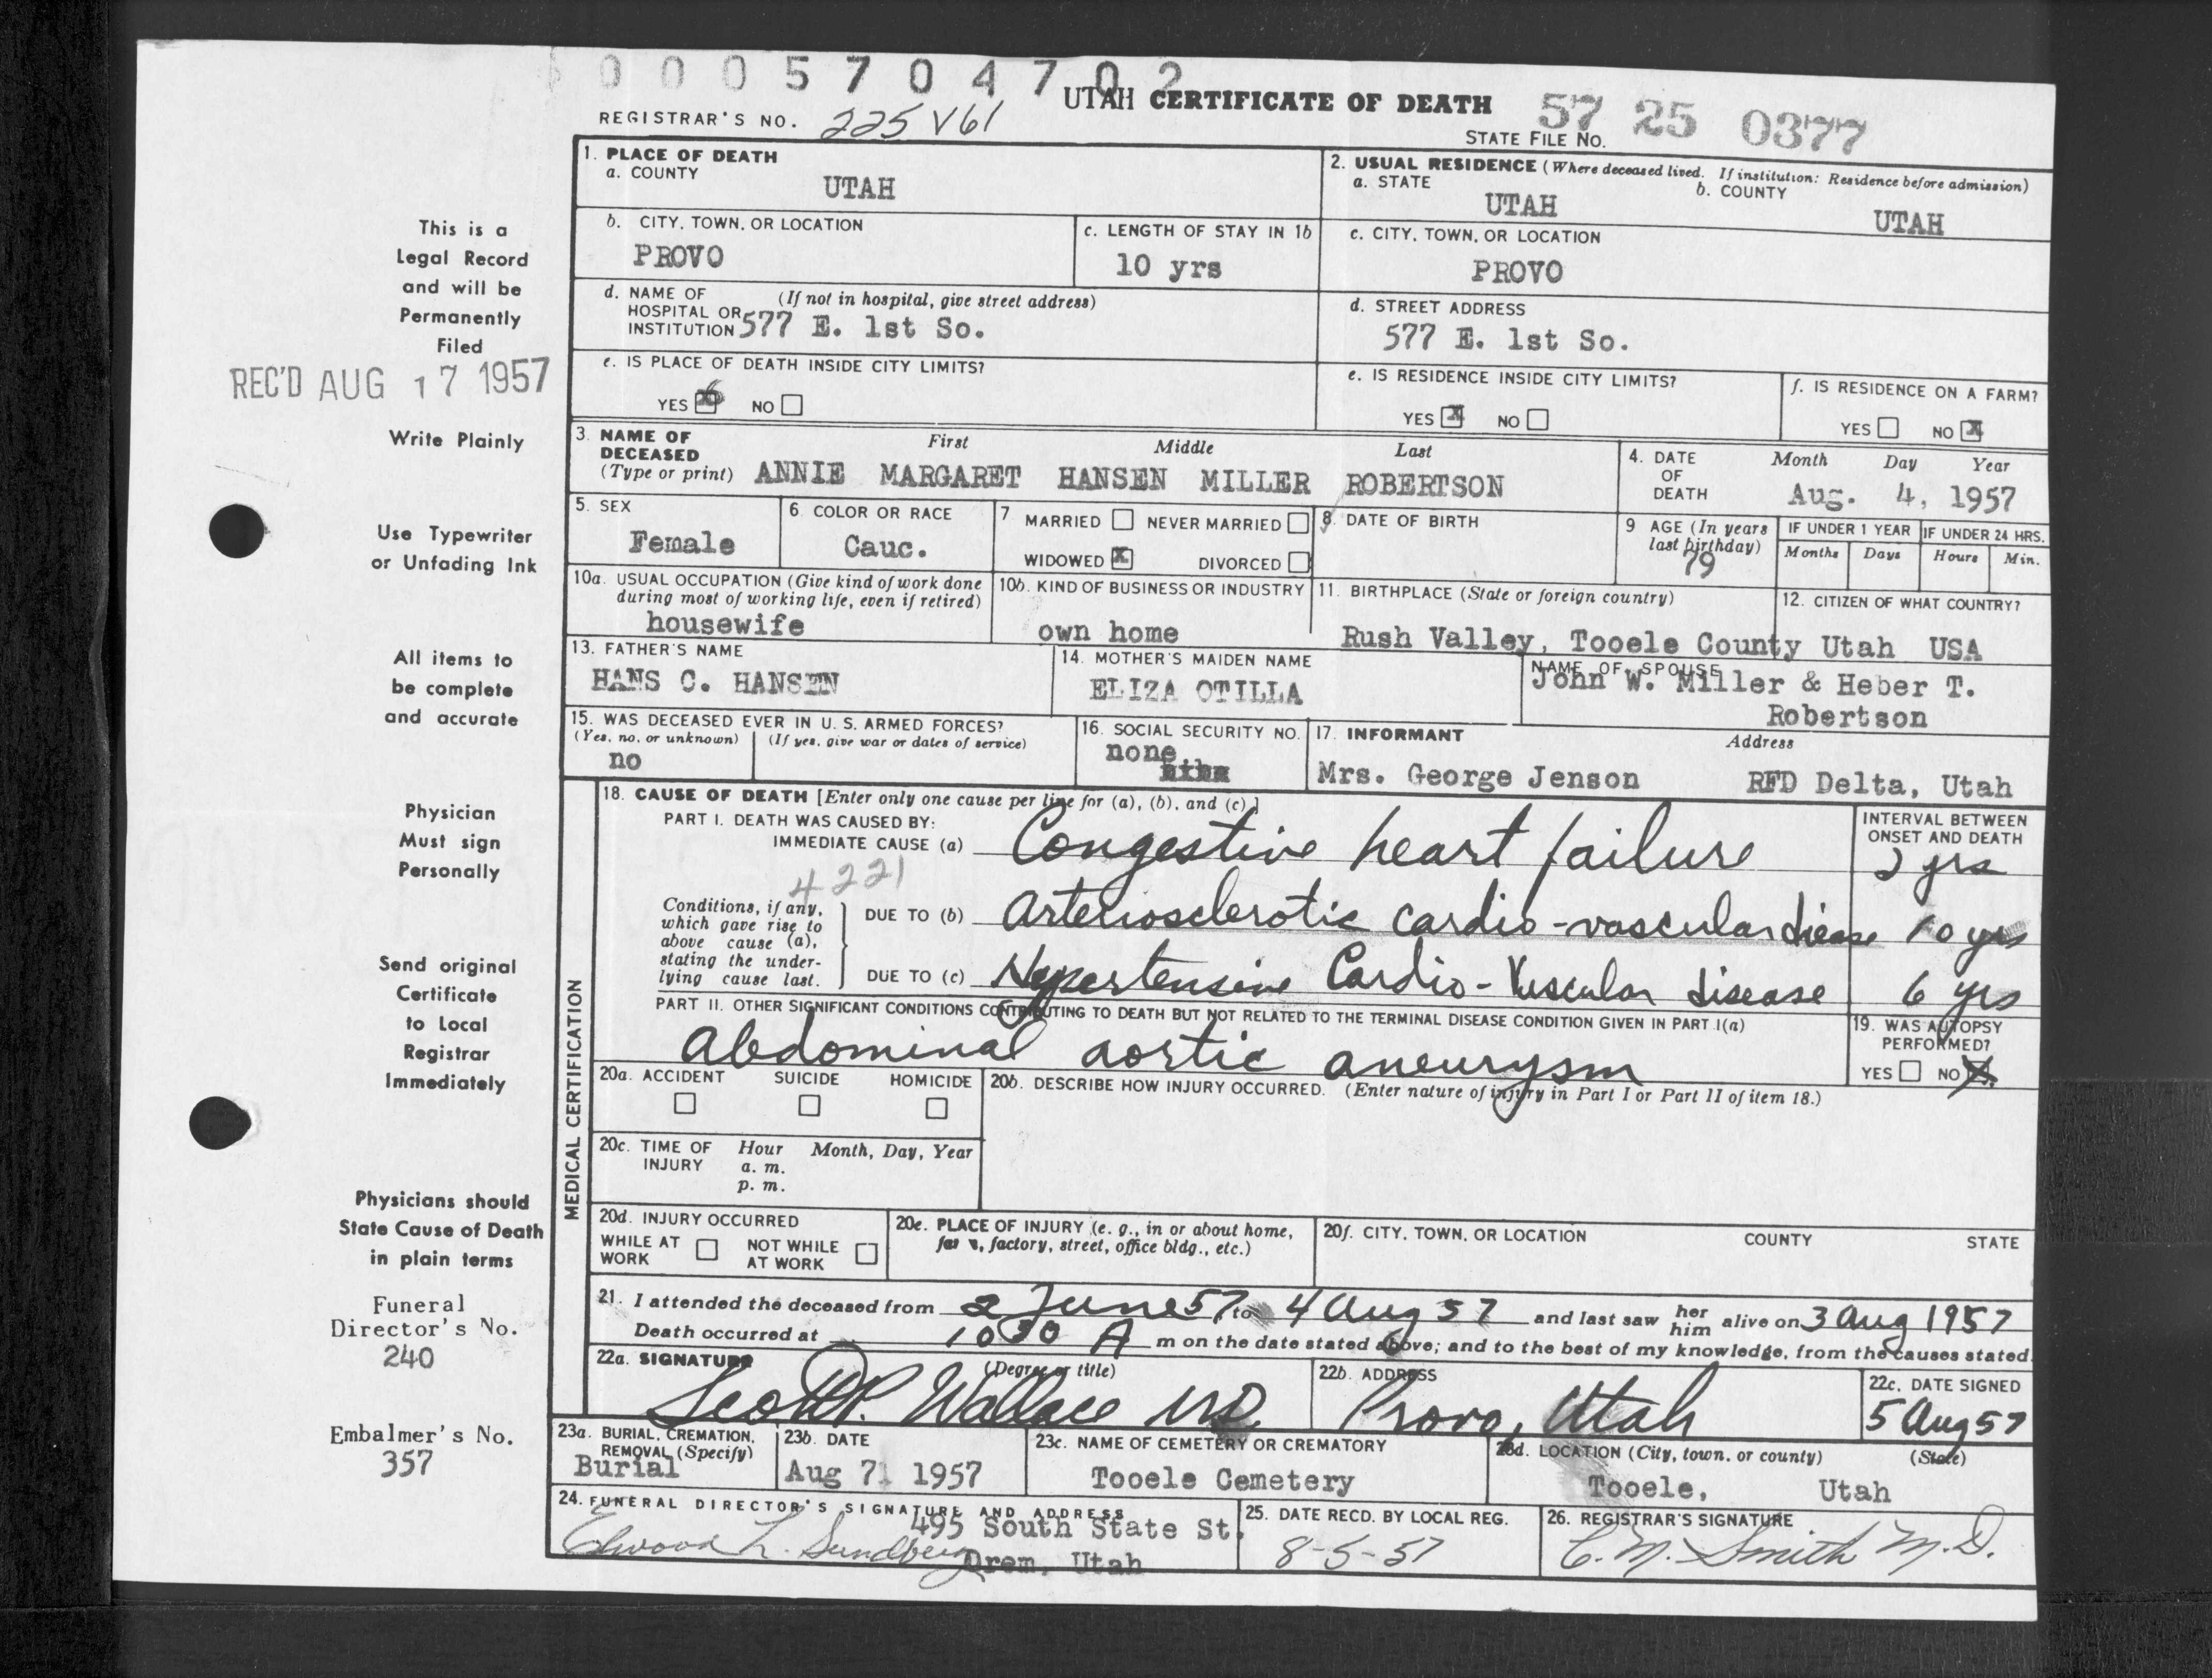 000 5 7 0 4 7 0 2
UTAH CERTIFICATE OF DEATH
REGISTRAR'S NO. 225 V61
57 25 0377
STATE FILE NO.
1. PLACE OF DEATH
a. COUNTY
UTAH
2. USUAL RESIDENCE (Where deceased lived. If institution: Residence before admission)
a. STATE b. COUNTY
UTAH UTAH
b. CITY, TOWN, OR LOCATION
PROVO
c. LENGTH OF STAY IN 1b
10 yrs
c. CITY, TOWN, OR LOCATION
PROVO
d. NAME OF (If not in hospital, give street address)
HOSPITAL OR
INSTITUTION 577 E. 1st So.
d. STREET ADDRESS
577 E. 1st So.
e. IS PLACE OF DEATH INSIDE CITY LIMITS?
YES X NO
e. IS RESIDENCE INSIDE CITY LIMITS?
YES X NO
f. IS RESIDENCE ON A FARM?
YES NO X
3. NAME OF DECEASED (Type or print) First Middle Last
ANNIE MARGARET HANSEN MILLER ROBERTSON
4. DATE OF DEATH Month Day Year
Aug. 4, 1957
5. SEX
Female
6. COLOR OR RACE
Cauc.
7 MARRIED NEVER MARRIED
WIDOWED X DIVORCED
8. DATE OF BIRTH
9 AGE (In years last birthday)
79
IF UNDER 1 YEAR IF UNDER 24 HRS.
Months Days Hours Min.
10a. USUAL OCCUPATION (Give kind of work done
during most of working life, even if retired)
housewife
10b. KIND OF BUSINESS OR INDUSTRY
own home
11. BIRTHPLACE (State or foreign country)
Rush Valley, Tooele County Utah
12. CITIZEN OF WHAT COUNTRY?
USA
13. FATHER'S NAME
HANS C. HANSEN
14. MOTHER'S MAIDEN NAME
ELIZA OTILLA
NAME OF SPOUSE
John W. Miller & Heber T.
Robertson
15. WAS DECEASED EVER IN U. S. ARMED FORCES?
(Yes, no, or unknown) (If yes, give war or dates of service)
no
16. SOCIAL SECURITY NO.
none
17. INFORMANT Address
Mrs. George Jenson RFD Delta, Utah
MEDICAL CERTIFICATION
18. CAUSE OF DEATH [Enter only one cause per line for (a), (b), and (c).]
PART I. DEATH WAS CAUSED BY:
IMMEDIATE CAUSE (a) Congestive heart failure
INTERVAL BETWEEN
ONSET AND DEATH
2 yrs
4221
Conditions, if any,
which gave rise to
above cause (a),
stating the under-
lying cause last.
DUE TO (b) Arteriosclerotic cardio-vascular disease 10 yrs
DUE TO (c) Hypertensive Cardio-Vascular disease 6 yrs
PART II. OTHER SIGNIFICANT CONDITIONS CONTRIBUTING TO DEATH BUT NOT RELATED TO THE TERMINAL DISEASE CONDITION GIVEN IN PART I(a)
Abdominal aortic aneurysm
19. WAS AUTOPSY
PERFORMED?
YES NO X
20a. ACCIDENT SUICIDE HOMICIDE
20b. DESCRIBE HOW INJURY OCCURRED. (Enter nature of injury in Part I or Part II of item 18.)
20c. TIME OF INJURY Hour Month, Day, Year
a. m.
p. m.
20d. INJURY OCCURRED
WHILE AT WORK NOT WHILE AT WORK
20e. PLACE OF INJURY (e. g., in or about home,
farm, factory, street, office bldg., etc.)
20f. CITY, TOWN, OR LOCATION COUNTY STATE
21. I attended the deceased from 2 June 57 to 4 Aug 57 and last saw her him alive on 3 Aug 1957
Death occurred at 1030 A m on the date stated above; and to the best of my knowledge, from the causes stated.
22a. SIGNATURE (Degree or title)
Scott P. Wallace MD
22b. ADDRESS
Provo, Utah
22c. DATE SIGNED
5 Aug 57
23a. BURIAL, CREMATION,
REMOVAL (Specify)
Burial
23b. DATE
Aug 7 1957
23c. NAME OF CEMETERY OR CREMATORY
Tooele Cemetery
23d. LOCATION (City, town, or county) (State)
Tooele, Utah
24. FUNERAL DIRECTOR'S SIGNATURE AND ADDRESS
495 South State St.
Elwood L. Sundberg Orem, Utah
25. DATE RECD. BY LOCAL REG.
8-5-57
26. REGISTRAR'S SIGNATURE
C. M. Smith M.D.
This is a
Legal Record
and will be
Permanently
Filed
REC'D AUG 17 1957
Write Plainly
Use Typewriter
or Unfading Ink
All items to
be complete
and accurate
Physician
Must sign
Personally
Send original
Certificate
to Local
Registrar
Immediately
Physicians should
State Cause of Death
in plain terms
Funeral
Director's No.
240
Embalmer's No.
357